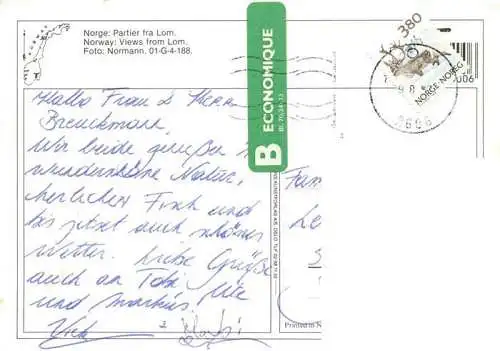 Norge: Partier fra Lom.
Norway: Views from Lom.
Foto: Normann. 01-G-4-188.
B ECONOMIQUE
380
NORGE NOREG
006
Hallo Frau & Herr
Breuckmann,
Wir beide genießen
wunderbare Natur,
herrlichen Fisch und
bis jetzt auch schönes
Wetter. Liebe Grüße
auch an Tobi,
und Markus.
Printed in N
Fam
Le